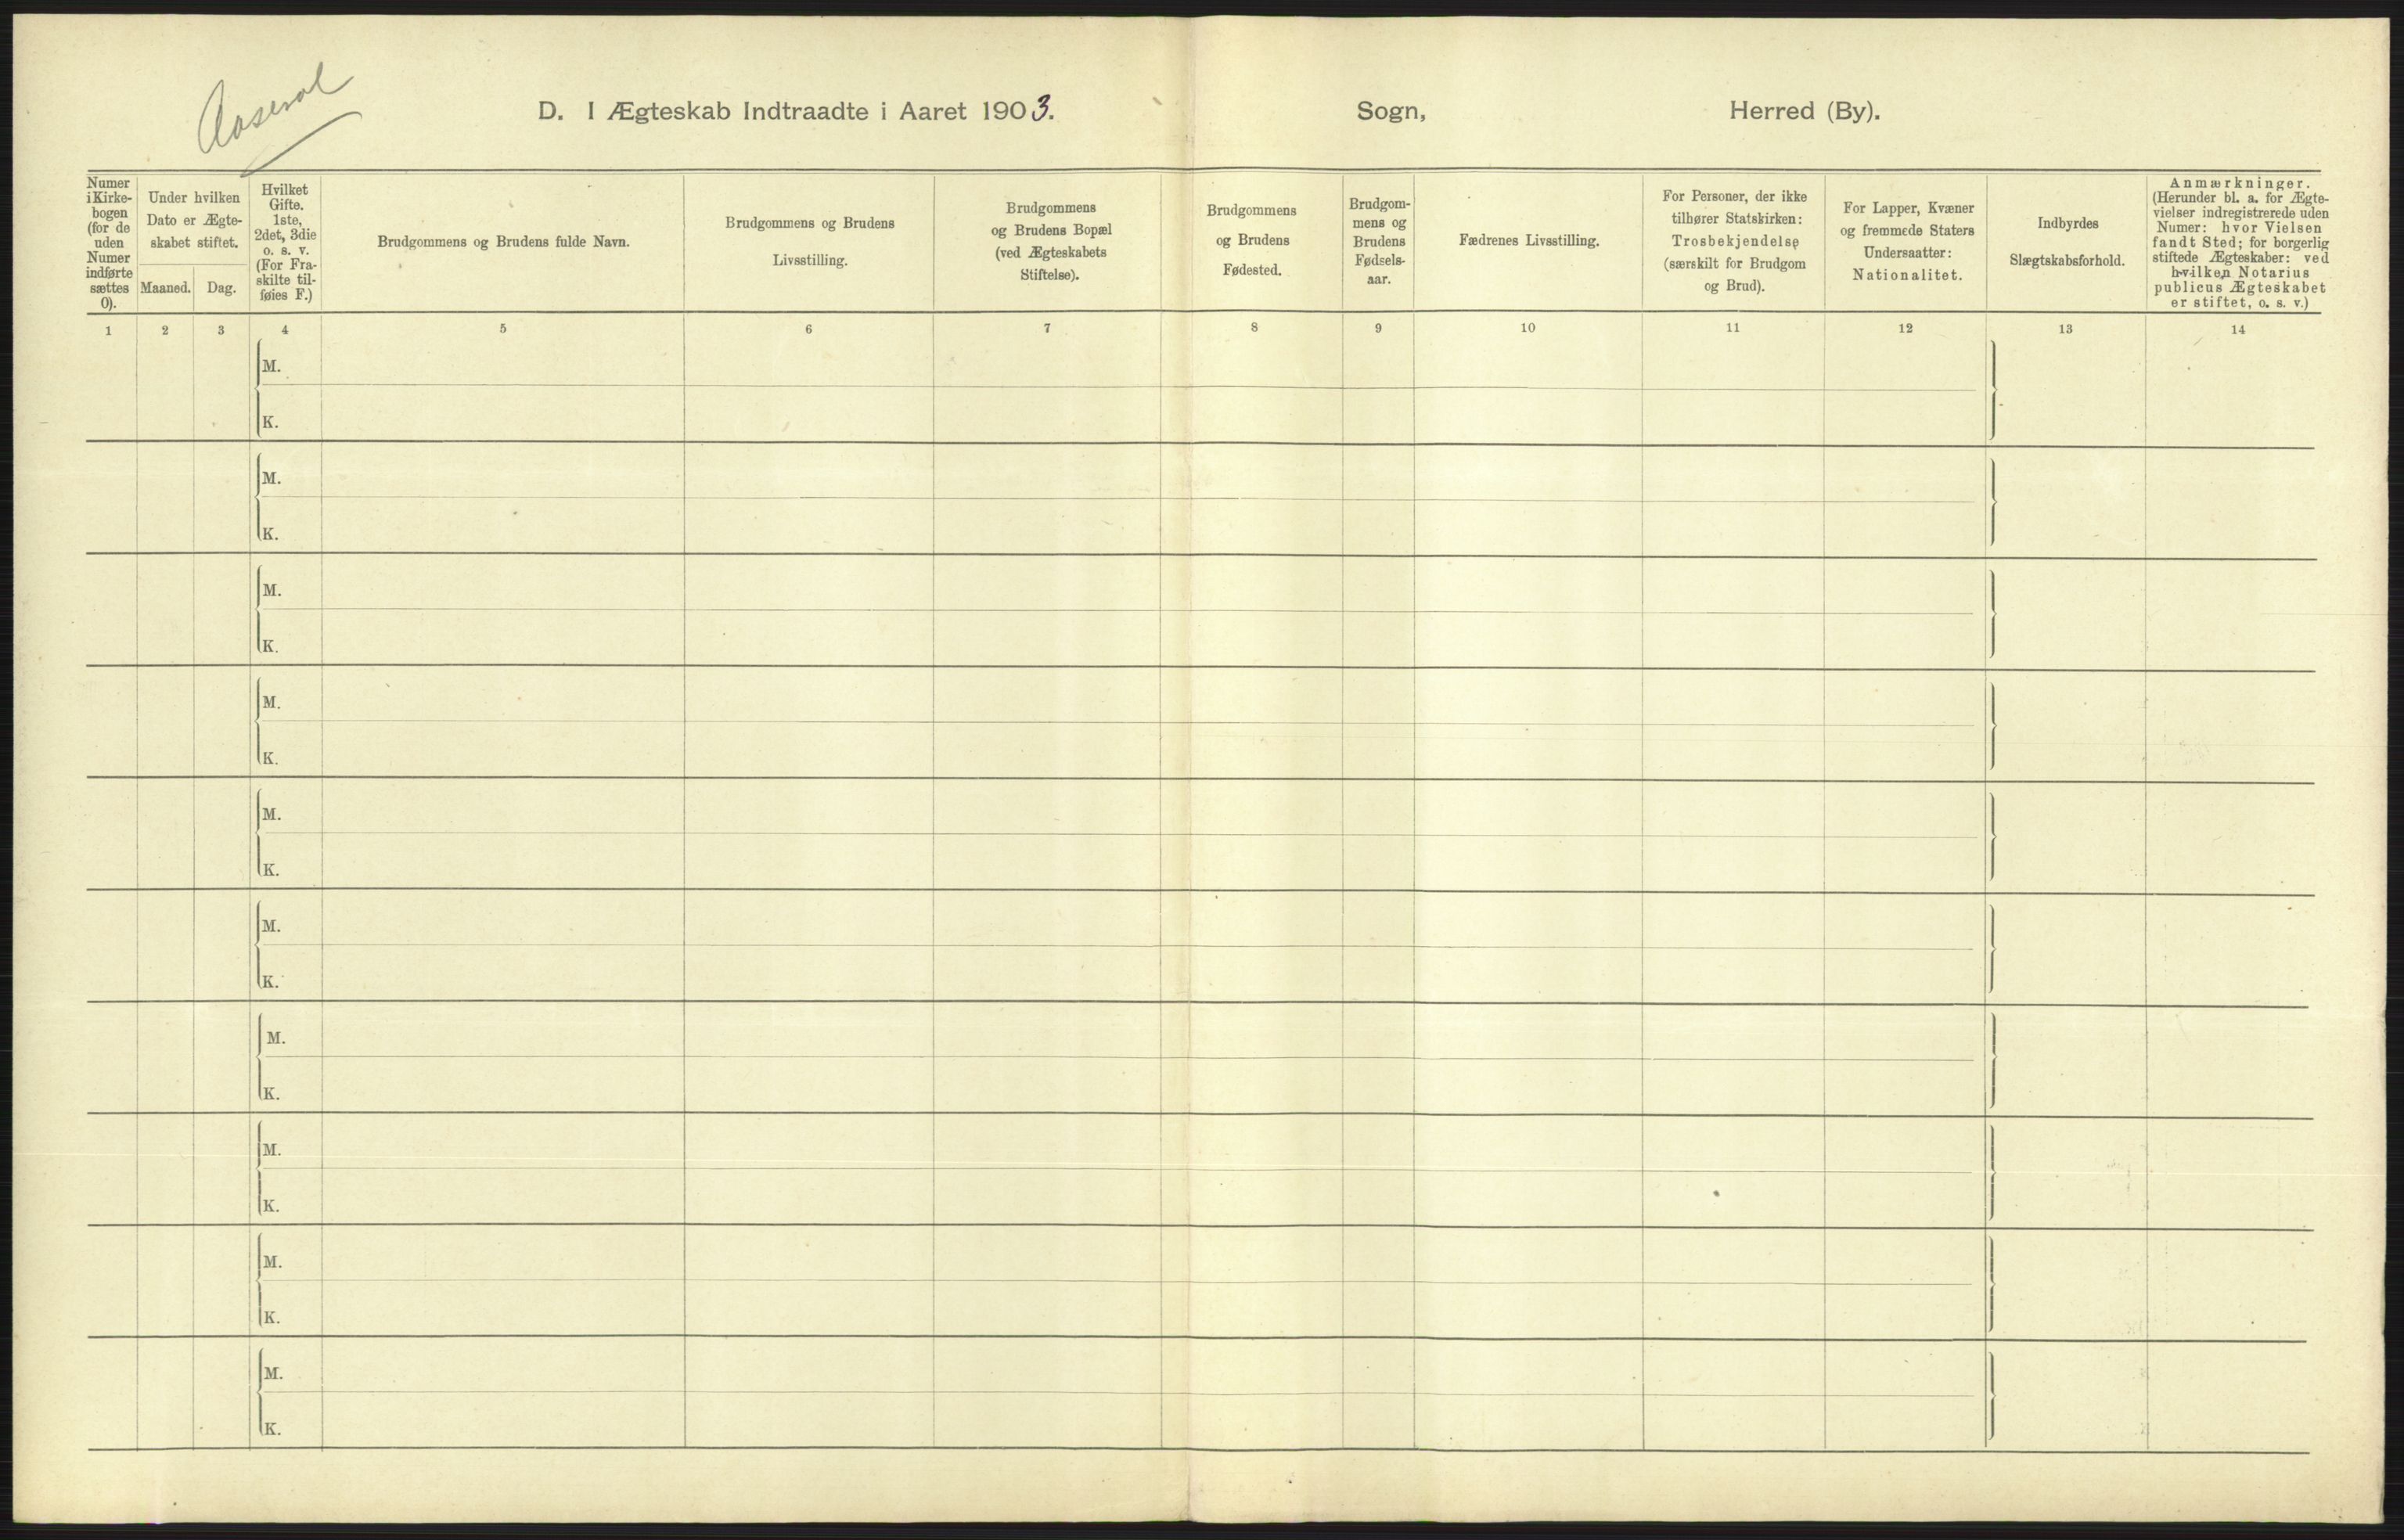 Aaseral
D. I Ægteskab Indtraadte i Aaret 1903. Sogn, Herred (By).
Numer
i Kirke-
bogen
(for de
uden
Numer
indførte
sættes
0).
Under hvilken
Dato er Ægte-
skabet stiftet.
Maaned.
Dag.
Hvilket
Gifte.
1ste,
2det, 3die
o. s. v.
(For Fra-
skilte til-
føies F.)
Brudgommens og Brudens fulde Navn.
Brudgommens og Brudens
Livsstilling.
Brudgommens
og Brudens Bopæl
(ved Ægteskabets
Stiftelse).
Brudgommens
og Brudens
Fødested.
Brudgom-
mens og
Brudens
Fødsels-
aar.
Fædrenes Livsstilling.
For Personer, der ikke
tilhører Statskirken:
Trosbekjendelse
(særskilt for Brudgom
og Brud).
For Lapper, Kvæner
og fremmede Staters
Undersaatter:
Nationalitet.
Indbyrdes
Slægtskabsforhold.
Anmærkninger.
(Herunder bl. a. for Ægte-
vielser indregistrerede uden
Numer: hvor Vielsen
fandt Sted; for borgerlig
stiftede Ægteskaber: ved
hvilken Notarius
publicus Ægteskabet
er stiftet, o. s. v.)
1 2 3 4 5 6 7 8 9 10 11 12 13 14
M.
K.
M.
K.
M.
K.
M.
K.
M.
K.
M.
K.
M.
K.
M.
K.
M.
K.
M.
K.